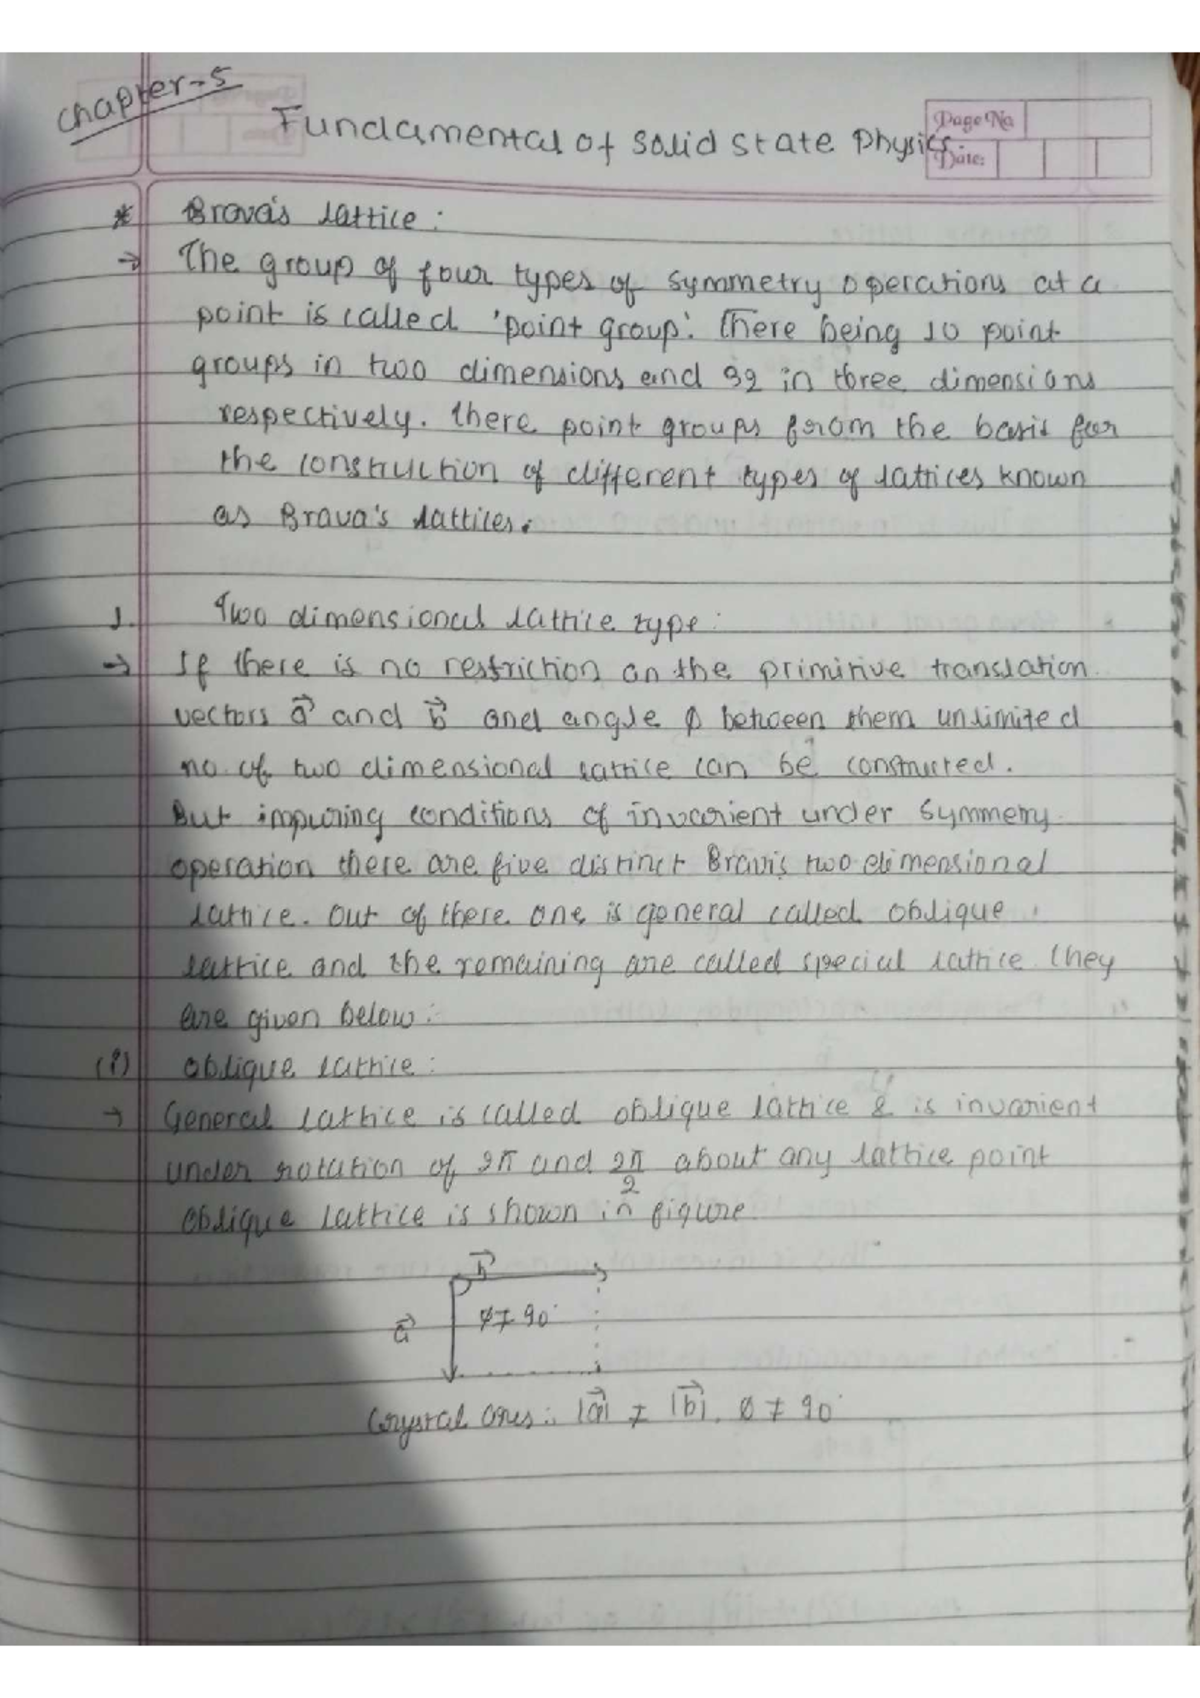 Chapter-5
Fundamental of Solid State Physics.
Page No.
Date:
* Brava's lattice:
→ The group of four types of symmetry operations at a
point is called 'point group'. There being 10 point
groups in two dimensions and 32 in three dimensions
respectively. there point groups from the basis for
the construction of different types of lattices known
as Brava's lattices.
1. Two dimensional lattice type:
→ If there is no restriction on the primitive translation
vectors a⃗ and b⃗ and angle φ between them unlimited
no. of two dimensional lattice can be constructed.
But impuring conditions of invarient under symmetry
operation there are five distinct Bravis two dimensional
lattice. Out of there one is general called oblique
lattice and the remaining are called special lattice they
are given below:
(i) oblique lattice:
→ General lattice is called oblique lattice & is invarient
under rotation of 2π and 2π/2 about any lattice point
oblique lattice is shown in figure.
b⃗
a⃗ φ≠90°
Crystal axes: |a⃗| ≠ |b⃗|, φ ≠ 90°